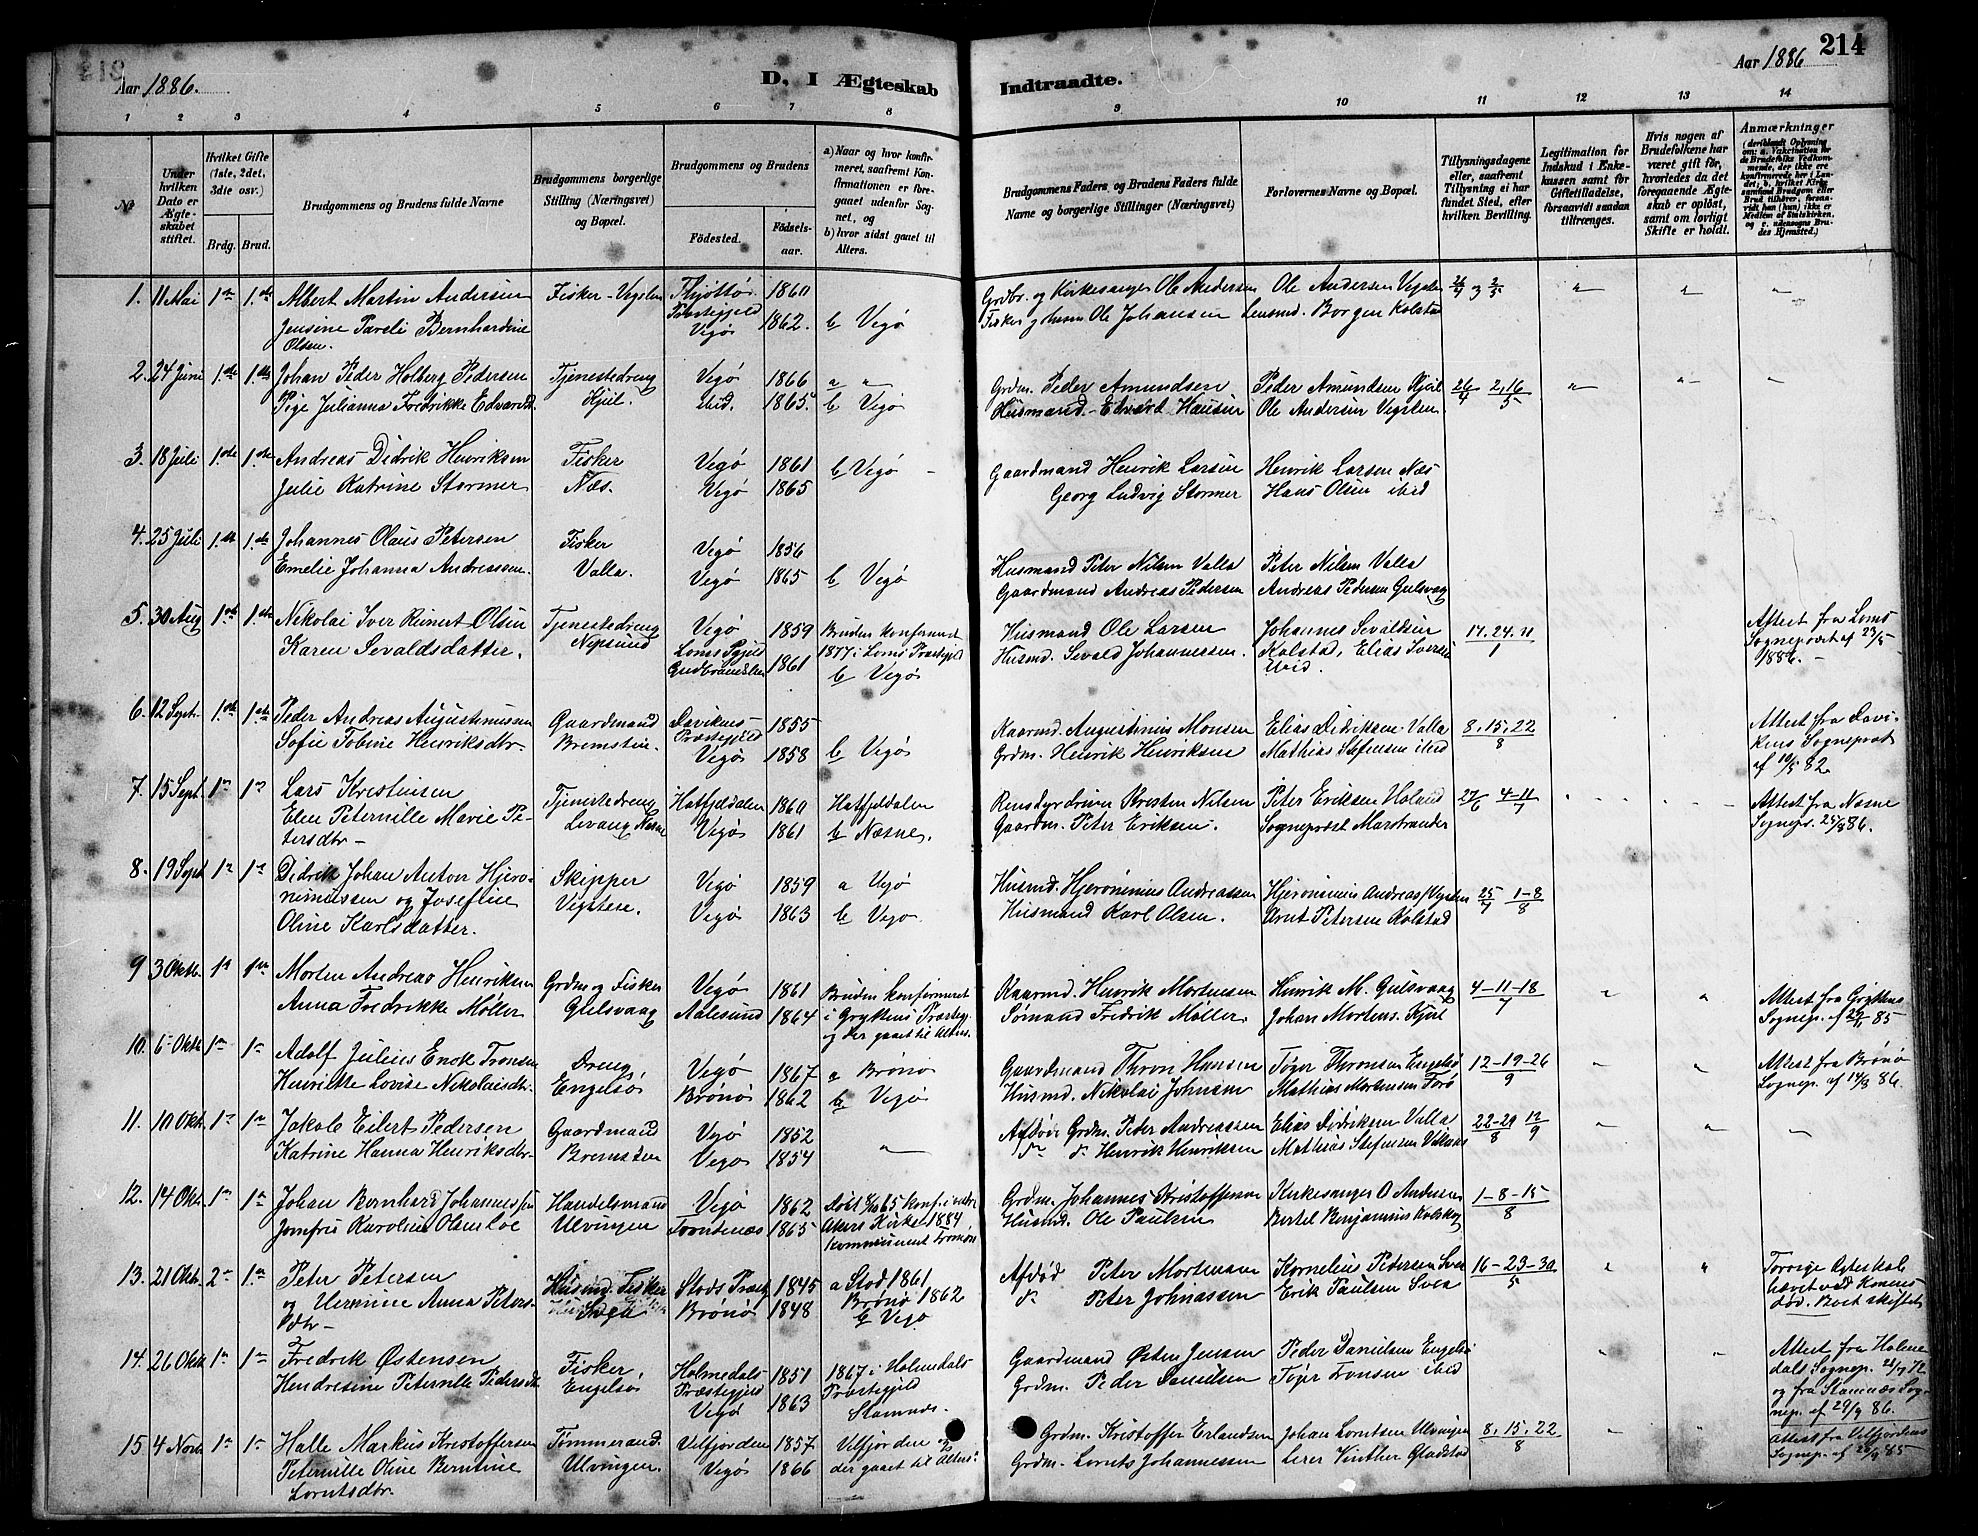 Aar 1886.
D, I Ægteskab
Indtraadte.
Aar 1886
214
1 2 3 4 5 6 7 8 9 10 11 12 13 14
No
Under hvilken Dato er Ægteskabet stiftet.
Hvilket Gifte (1ste, 2det, 3die osv.)
Brdg. Brud.
Brudgommens og Brudens fulde Navne
Brudgommens borgerlige Stilling (Næringsvei) og Bopæl.
Brudgommens og Brudens
Fødested.
Fødselsaar.
a) Naar og hvor konfirmeret, saafremt Konfirmationen er foregaaet udenfor Sognet, og
b) hvor sidst gaaet til Alters.
Brudgommens Faders og Brudens Faders fulde Navne og borgerlige Stillinger (Næringsvei)
Forlovernes Navne og Bopæl.
Tillysningsdagene eller, saafremt Tillysning ei har fundet Sted, efter hvilken Bevilling.
Legitimation for Indskud i Enkekassen samt for Giftetilladelse, forsaavidt saadan tiltrænges.
Hvis nogen af Brudefolkene har været gift før, hvorledes da det foregaaende Ægteskab er opløst, samt om lovligt Skifte er holdt.
Anmærkninger
1. 11 Mai 1ste 1.ste Albert Martin Andersen Fisker - Vegsten Thjøttø Præstegjeld 1860 Grdbr. og Kirkesanger Ole Andersen Ole Andersen Vegsten 26/4 3 2/5
Jensine Pareli Bernhardine Olsen. Vegø 1862. b Vegø Ole Johansen Lensmd. Borgen Kolstad
2. 24 Juni 1.ste 1.ste Johan Peder Holberg Pedersen Tjenestedreng Vegø 1866 a Grdm. Peder Amundsen Peder Amundsen Kjul 26/4 2,16/5
Pige Julianna Fredrikke Edvardsd. Kjul. ibid. 1865. b Vegø Husmand Edvard Hansen Ole Andersen Vegsten
3. 18 Juli 1.ste 1.ste Andreas Didrik Henriksen Fisker Vegø 1861 b Vegø Gaardmand Henrik Larsen Henrik Larsen Næs
Julie Katrine Stormer Næs. Vegø 1865 Georg Ludvig Stormer Hans Olsen ibid
4. 25 Juli 1.ste 1.ste Johannes Olaus Petersen Fisker Vegø 1856 Husmand Peter Nilsen Valla Peter Nilsen Valla
Emelie Johanna Andreassen. Valla. Vegø 1865 b Vegø Gaardmand Andreas Pedersen Andreas Pedersen Gulsvaag
5. 30 Aug 1ste 1.ste Nikolai Iver Reinert Olsen Tjenestedreng Vegø 1859 Bruden konfirmeret Husmand Ole Larsen Johannes Sevaldsen 17. 24. 11/1 Attest fra Loms
Karen Sevaldsdatter. Loms Pgjld Gudbrandsdalen 1861 1877 i Loms Præstegjeld b Vegø Husmd. Sevald Johannessen. Kolstad, Elias Iversen ibid. Sogneprest af 23/5 1886.
6. 12 Sept. 1.ste 1.ste Peder Andreas Augustinussen Gaardmand Davikens Præstegjeld 1855 Kaarmd. Augustinius Monsen Elias Didriksen Valla 8. 15. 22/8 Attest fra Davikens Sogneprst
Sofie Tobine Henriksdtr. Bremsten. Vegø 1858 b Vegø Grdm. Henrik Henriksen Mathias Stefensen ibid af 10/5 82
7. 15 Sept. 1ste 1ste Lars Kristensen Tjenestedreng Hatfjeldalen 1860 Hatfjeldalen Rensdyrdriver Kresten Nilsen Peter Eriksen Holand 27/6 4-11/7 Attest fra Næsne
Elen Peternille Marie Petersdtr Levang Næsne Vegø 1861 b Næsne. Gaardm. Peter Eriksen. Sogneprest Marstrander Sognep. 25/8 86.
8. 19 Sept 1ste 1ste Didrik Johan Antor Hjeronimussen og Josefine Skipper Vegø 1859 a Vegø Husmd. Hjeronimus Andreassen Hjeronimus Andreas/Vegsten 25/7 1-8/8
Oline Karlsdatter. Vegstese. Vegø 1863 b Vegø. Husmand Karl Olsen. Arnt Petersen Kolstad
9 3 Oktb. 1ste 1ste Morten Andreas Henriksen Grdm og Fisker Vegø 1861 Bruden konfirmeret Kaarmd. Henrik Mortensen Henrik M. Gulsvaag 4-11-18/7 Attest fra Gryttens
Anna Fredrikke Møller Gulsvaag Aalesund 1864 i Gryttens Præstegj. og der gaaet til Alters. Sømand Fredrik Møller. Johan Mortens. Kjul Sognep. af 26/11 85
10. 6 Oktb 1ste 1ste Adolf Julius Enok Tronsen Dreng, Vegø 1867 a Brønø Gaardmand Thron Hansen Tøger Thronsen Engelsø 12-19-26/9 Attest fra Brønø
Henriette Lovise Nikolaisdtr. Engelsø Brønø 1862 b Vegø Husmd. Nikolai Johnsen Mathias Mortensen Torø Sognep. af 14/8 86.
11. 10 Okt. 1ste 1ste Jakob Eilert Pedersen Gaardmand Vegø 1852 Afdøde Grdm. Peter Andreassen Elias Didriksen Valla 22-29/8 12/9
Katrine Hanna Henriksdtr. Bremsten Vegø 1854 do do Henrik Henriksen Mathias Stefensen
12. 14 Okt. 1ste 1ste Johan Bernhard Johannessen Handelsmand Vegø 1862 Grdm. Johannes Kristoffersen Kirkesanger O Andersen 1-8-15/8
Jomfru Karoline Olensloe Ulvingen Trondenæs 1865 Husmd. Ole Paulsen Bertel Benjaminsen
13. 21 Okt. 2den 1ste Peter Petersen Husmd. Fisker Stods Præstg 1845 a Stod 1861 Afdød Peter Mortensen Kornelius Pedersen Svea 16-23-30/5 Forrige Ægteskab
og Hermine Anna Petersdtr Svea Brønø 1848 Brønø 1862 b Vegø do Peter Johnassen Erik Paulsen Svea hævet ved Konens død. Boet skiftet
14. 26 Okt 1ste 1ste Fredrik Østensen Fisker, Holmedals Præstegjeld 1851 1867 i Holmedals Præstegjeld Gaardmand Østen Jensen Peder Danielsen Engelsø Attest fra Holmedals Sognep. 21/9 72
Hendresine Peternille Pedersdtr Engelsø Vegø 1863 Stamnes. Grdm. Peder Danielsen Tøger Tronsen ibid og fra Stamnæs Sognep. af 29/9 86.
15 4 Nov. 1ste 1ste Halle Markus Kristoffersen Tømmermand Velfjorden 1857 Velfjorden og Grdm. Kristoffer Erlandsen Johan Lorntsen Ulvingen 8. 15. 22/8 Attest fra Velfjordens
Peternille Oline Berntine Lorntsdtr. Ulvingen. Vegø 1866 der gaaet til Alters. Grdm. Lornts Johannessen Vinther Gladstad Sognep. af 20/9 85